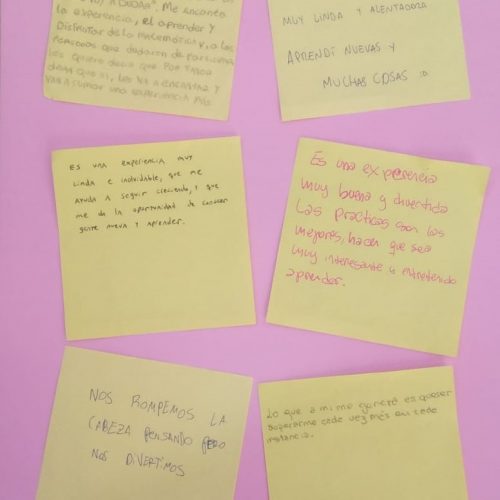 A DUDAR". Me encantó
la experiencia, el aprender y
Disfrutar de la matemática y, a las
personas que dudaron de participar
les quiero decir que por favor
digan que si, les va a encantar y
van a sumar una experiencia más
MUY LINDA Y ALENTADORA
APRENDÍ NUEVAS Y
MUCHAS COSAS :D
ES una experiencia muy
linda e inolvidable, que me
ayuda a seguir creciendo, y que
me da la oportunidad de conocer
gente nueva y aprender.
Es una experiencia
muy buena y divertida
Las practicas son las
mejores, hacen que sea
muy interesante y entretenido
aprender.
NOS ROMPEMOS LA
CABEZA PENSANDO PERO
NOS DIVERTIMOS
Lo que a mi me generó es querer
superarme cada vez más en cada
instancia.